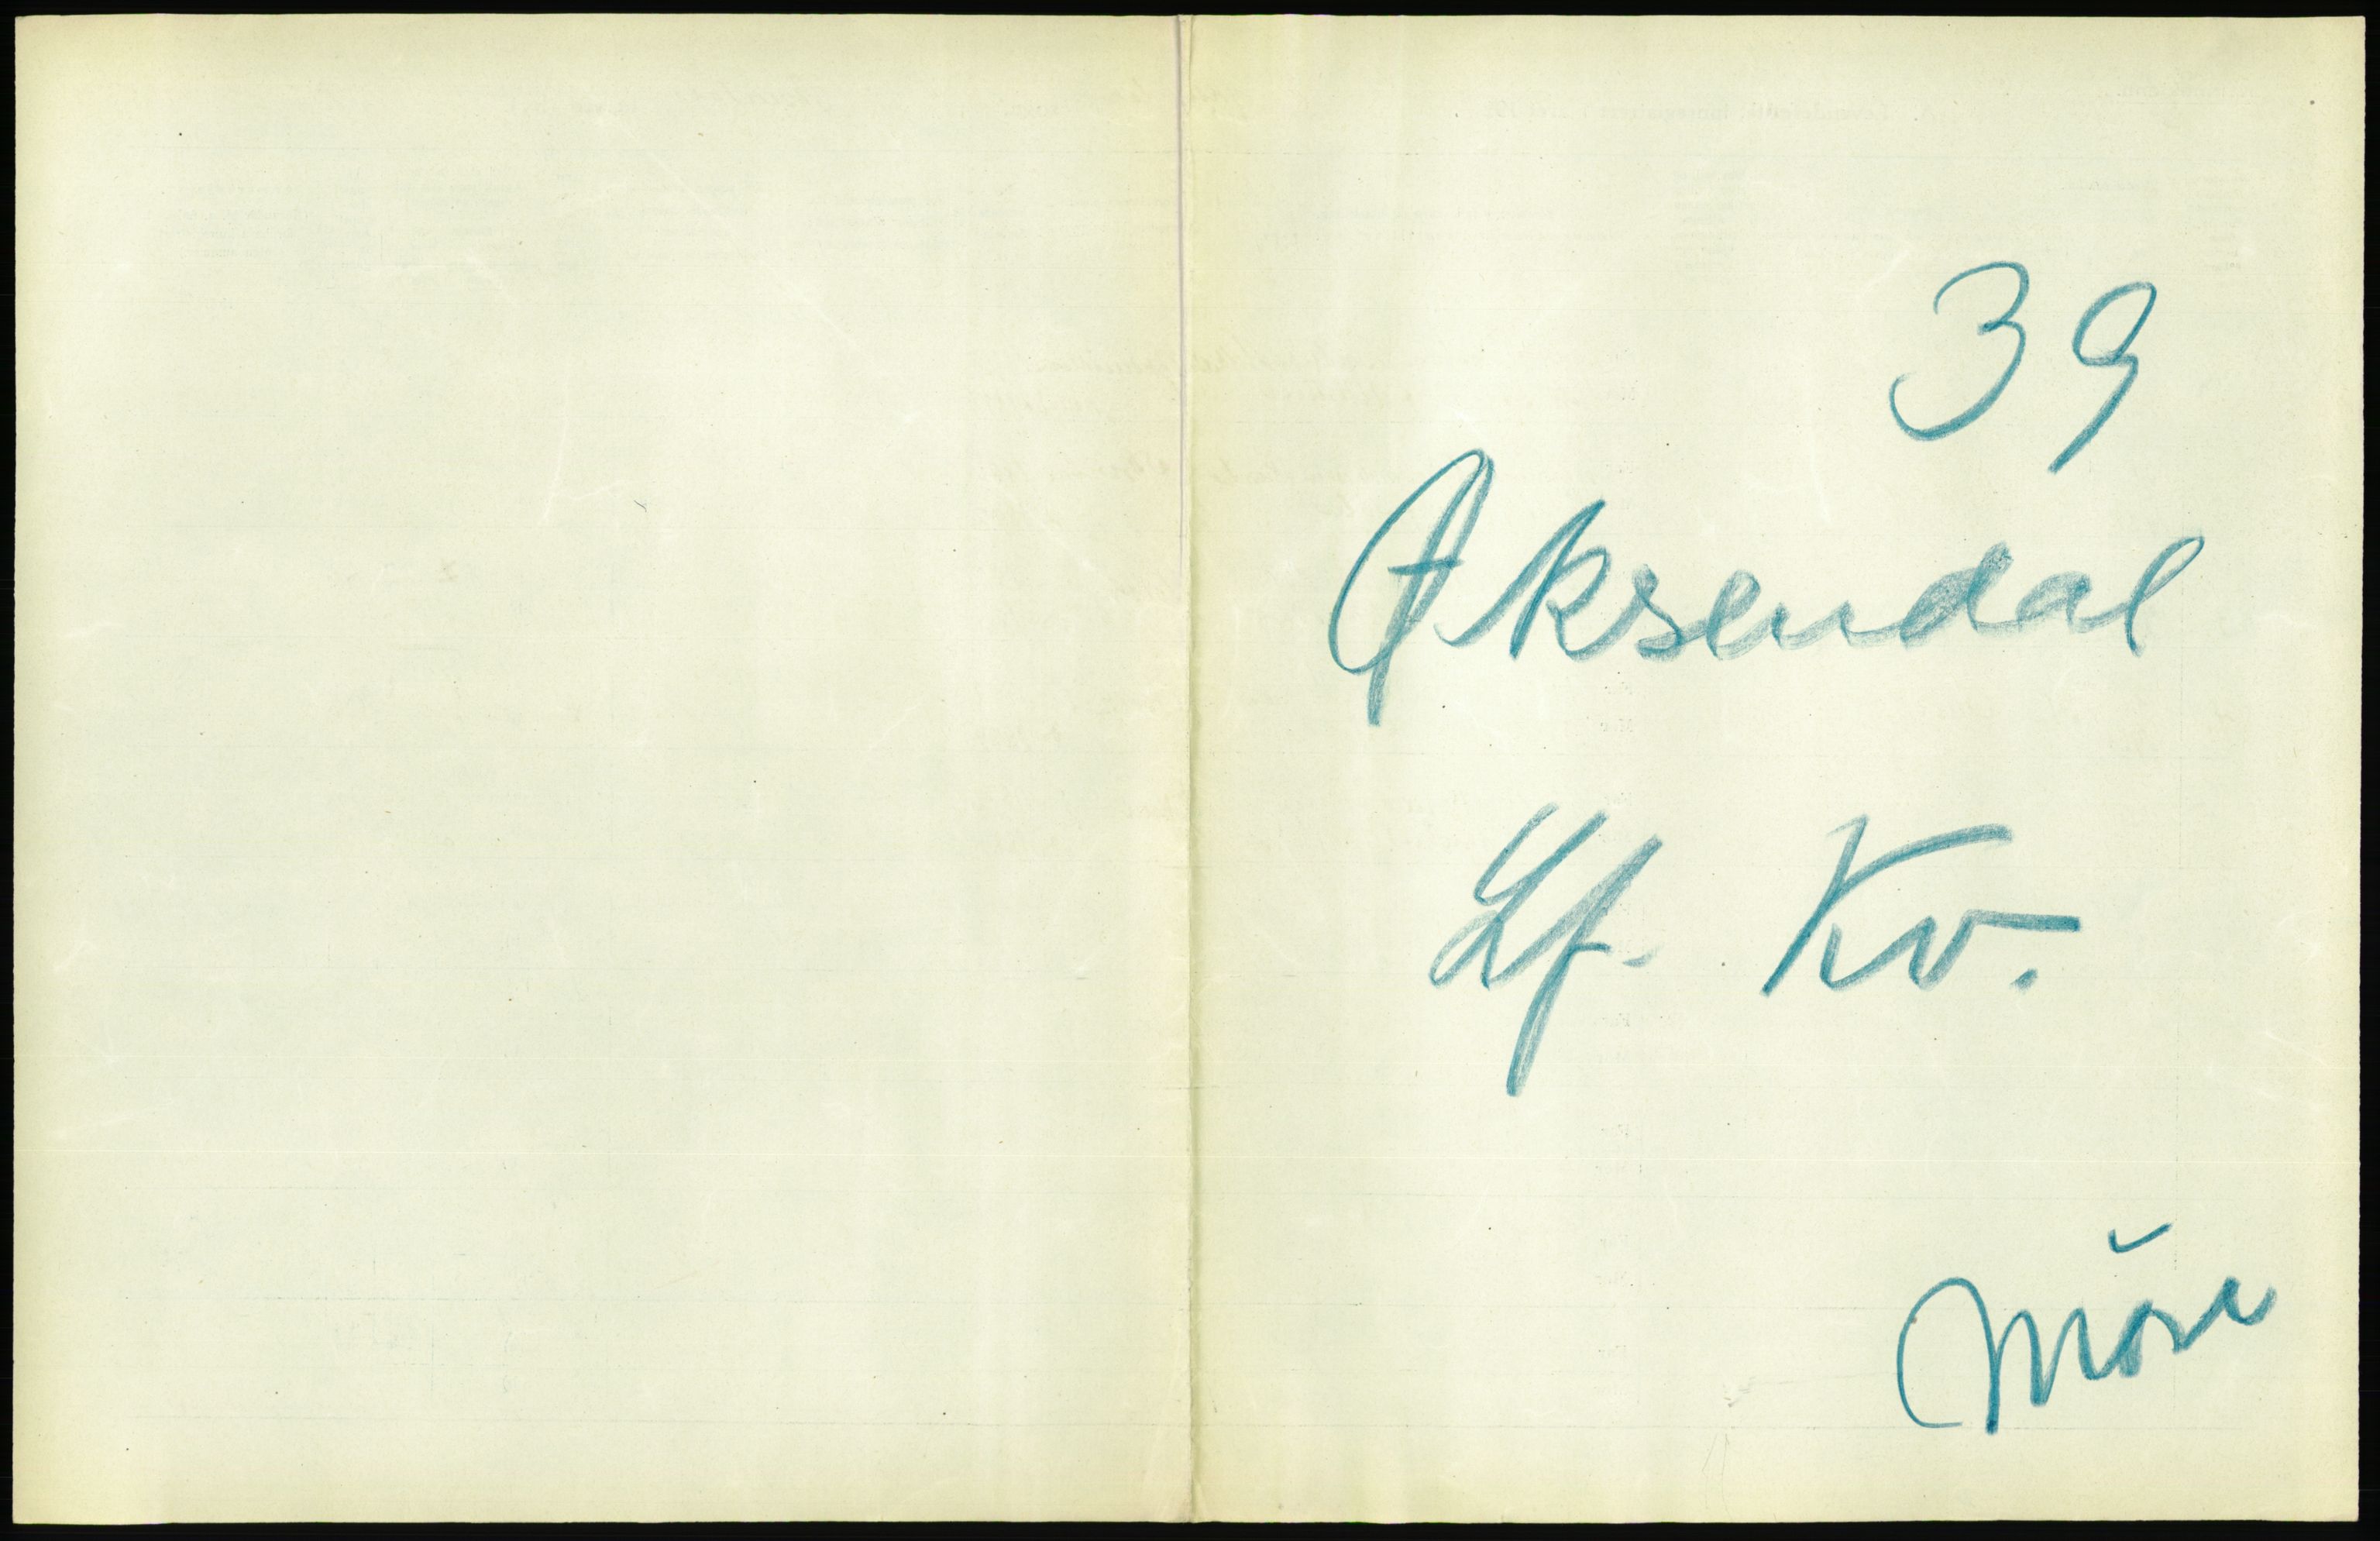 39
Øksendal
Lf. Kv.
Möre